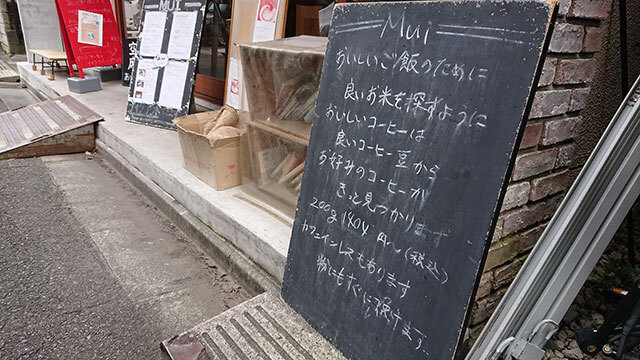 Mui
おいしいご飯のために
良いお米を探すように
おいしいコーヒーは
良いコーヒー豆から
お好みのコーヒーが
きっと見つかります
200g 1404円〜(税込)
カフェインレスもあります
粉にもすぐに挽けます
MUI